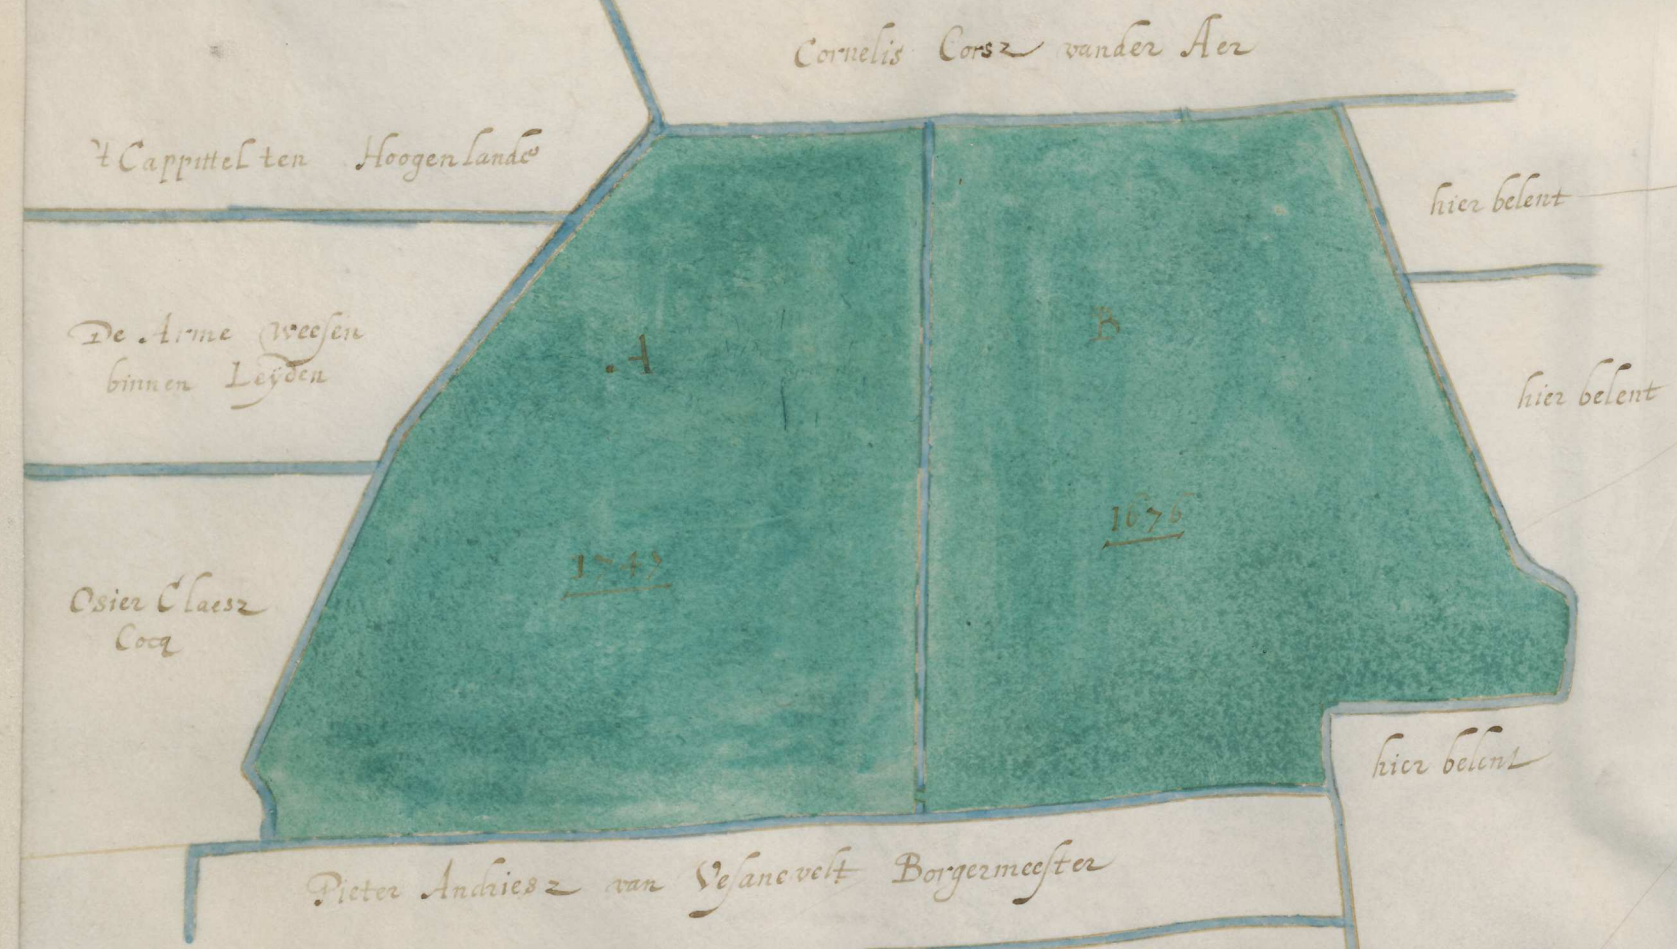 Cornelis Corsz vander Aer
't Cappittel ten Hoogenlande
hier belent
De Arme Weesen
binnen Leÿden
A
B
hier belent
1676
Osier Claesz
Cocq
hier belent
Pieter Andriesz van Borgermeester